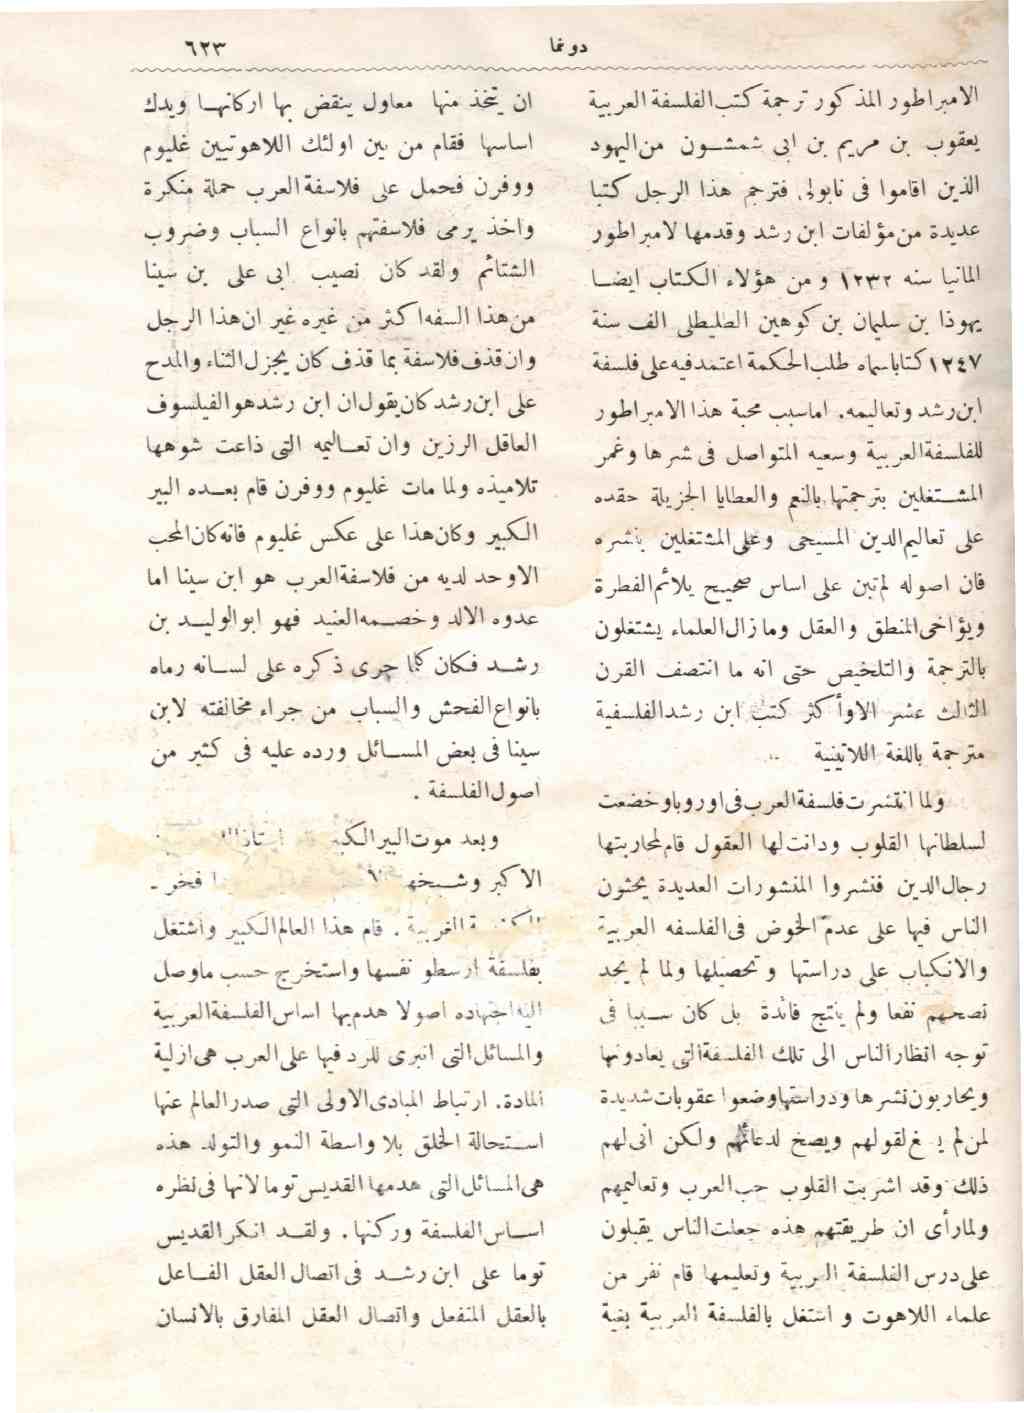 دوغما
٦٢٣
الامبراطور المذكور ترجمة كتب الفلسفة العربية
يعقوب بن مريم بن ابى شمشون من اليهود
الذين اقاموا فى نابولى. فترجم هذا الرجل كتبا
عديدة من مؤلفات ابن رشد وقدمها لامبراطور
المانيا سنه ١٢٣٢ و من هؤلاء الكتاب ايضا
يهوذا بن سليمان بن كوهين الطليطلى الف سنة
١٢٤٧ كتابا سماه طلب الحكمة اعتمد فيه على فلسفة
ابن رشد وتعاليمه. اما سبب محبة هذا الامبراطور
للفلسفة العربية وسعيه المتواصل فى نشرها وغمر
المشتغلين بترجمتها بالنعم والعطايا الجزيلة حقده
على تعاليم الدين المسيحى وعلى المشتغلين بنشره
فان اصوله لم تبن على اساس صحيح يلائم الفطرة
ويؤاخى المنطق والعقل وما زال العلماء يشتغلون
بالترجمة والتلخيص حتى انه ما انتصف القرن
الثالث عشر الا وأكثر كتب ابن رشد الفلسفية
مترجمة باللغة اللاتينية
ولما انتشرت فلسفة العرب فى اوروبا وخضعت
لسلطانها القلوب ودانت لها العقول قام لمحاربتها
رجال الدين فنشروا المنشورات العديدة يحثون
الناس فيها على عدم الخوض فى الفلسفه العربية
والانكباب على دراستها و تحصيلها ولما لم يجد
نصحهم نفعا ولم ينتج فائدة بل كان سببا فى
توجه انظار الناس الى تلك الفلسفة التى يعادونها
ويحاربون نشرها ودراستها وضعوا عقوبات شديدة
لمن لم لقولهم ويصخ لدعائهم ولكن انى لهم
ذلك وقد اشربت القلوب حب العرب وتعاليمهم
ولما رأى ان طريقتهم هذه جعلت الناس يقبلون
على درس الفلسفة العربية وتعليمها قام نفر من
علماء اللاهوت و اشتغل بالفلسفة العربية بغية
ان يتخذ منها معاول ينقض بها اركانها ويدك
اساسها فقام من بين اولئك اللاهوتيين غليوم
ووفرن فحمل على فلاسفة العرب حملة منكرة
واخذ يرمى فلاسفتهم بانواع السباب وضروب
الشتائم ولقد كان نصيب ابى على بن سينا
من هذا السفه اكثر من غيره غير ان هذا الرجل
وان قذف فلاسفة بما قذف كان يجزل الثناء والمدح
على ابن رشد كان يقول ان ابن رشد هو الفيلسوف
العاقل الرزين وان تعاليمه التى ذاعت شوهها
تلاميذه ولما مات غليوم ووفرن قام بعده البير
الكبير وكان هذا على عكس غليوم فانه كان المحب
الاوحد لديه من فلاسفة العرب هو ابن سينا اما
عدوه الالد وخصمه العنيد فهو ابو الوليد بن
رشد فكان كلما جرى ذكره على لسانه رماه
بانواع الفحش والسباب من جراء مخالفته لابن
سينا فى بعض المسائل ورده عليه فى كثير من
اصول الفلسفة .
وبعد موت البير الكبير قام استاذ
الاكبر وشيخها فخر
الغربية . قام هذا العالم الكبير واشتغل
بفلسفة ارسطو نفسها واستخرج حسب ما وصل
اليه اجتهاده اصولا هدم بها اساس الفلسفة العربية
والمسائل التى انبرى للرد فيها على العرب هى ازلية
المادة. ارتباط المبادى الاولى التى صدر العالم عنها
استحالة الخلق بلا واسطة النمو والتولد هذه
هى المسائل التى هدمها القديس توما لانها فى نظره
اساس الفلسفة وركنها. ولقد انكر القديس
توما على ابن رشد فى اتصال العقل الفاعل
بالعقل المنفعل واتصال العقل المفارق بالانسان